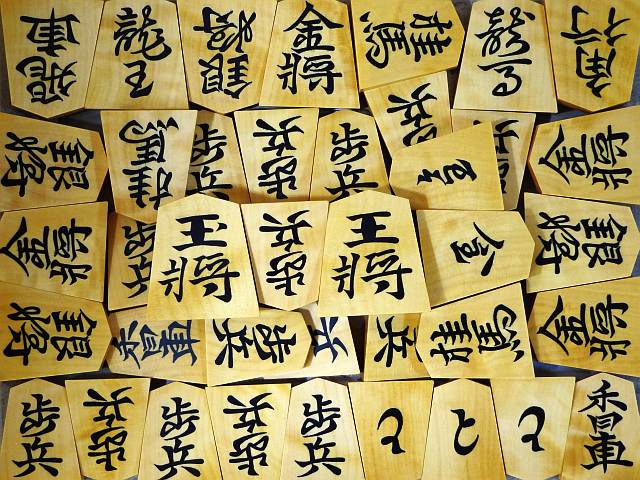 飛車
龍王
銀将
金将
桂馬
龍馬
銀将
桂馬
歩兵
歩兵
歩兵
歩兵
金将
金将
歩兵
王将
歩兵
王将
銀将
銀将
香車
歩兵
歩兵
金将
歩兵
歩兵
歩兵
歩兵
歩兵
と
と
と
香車